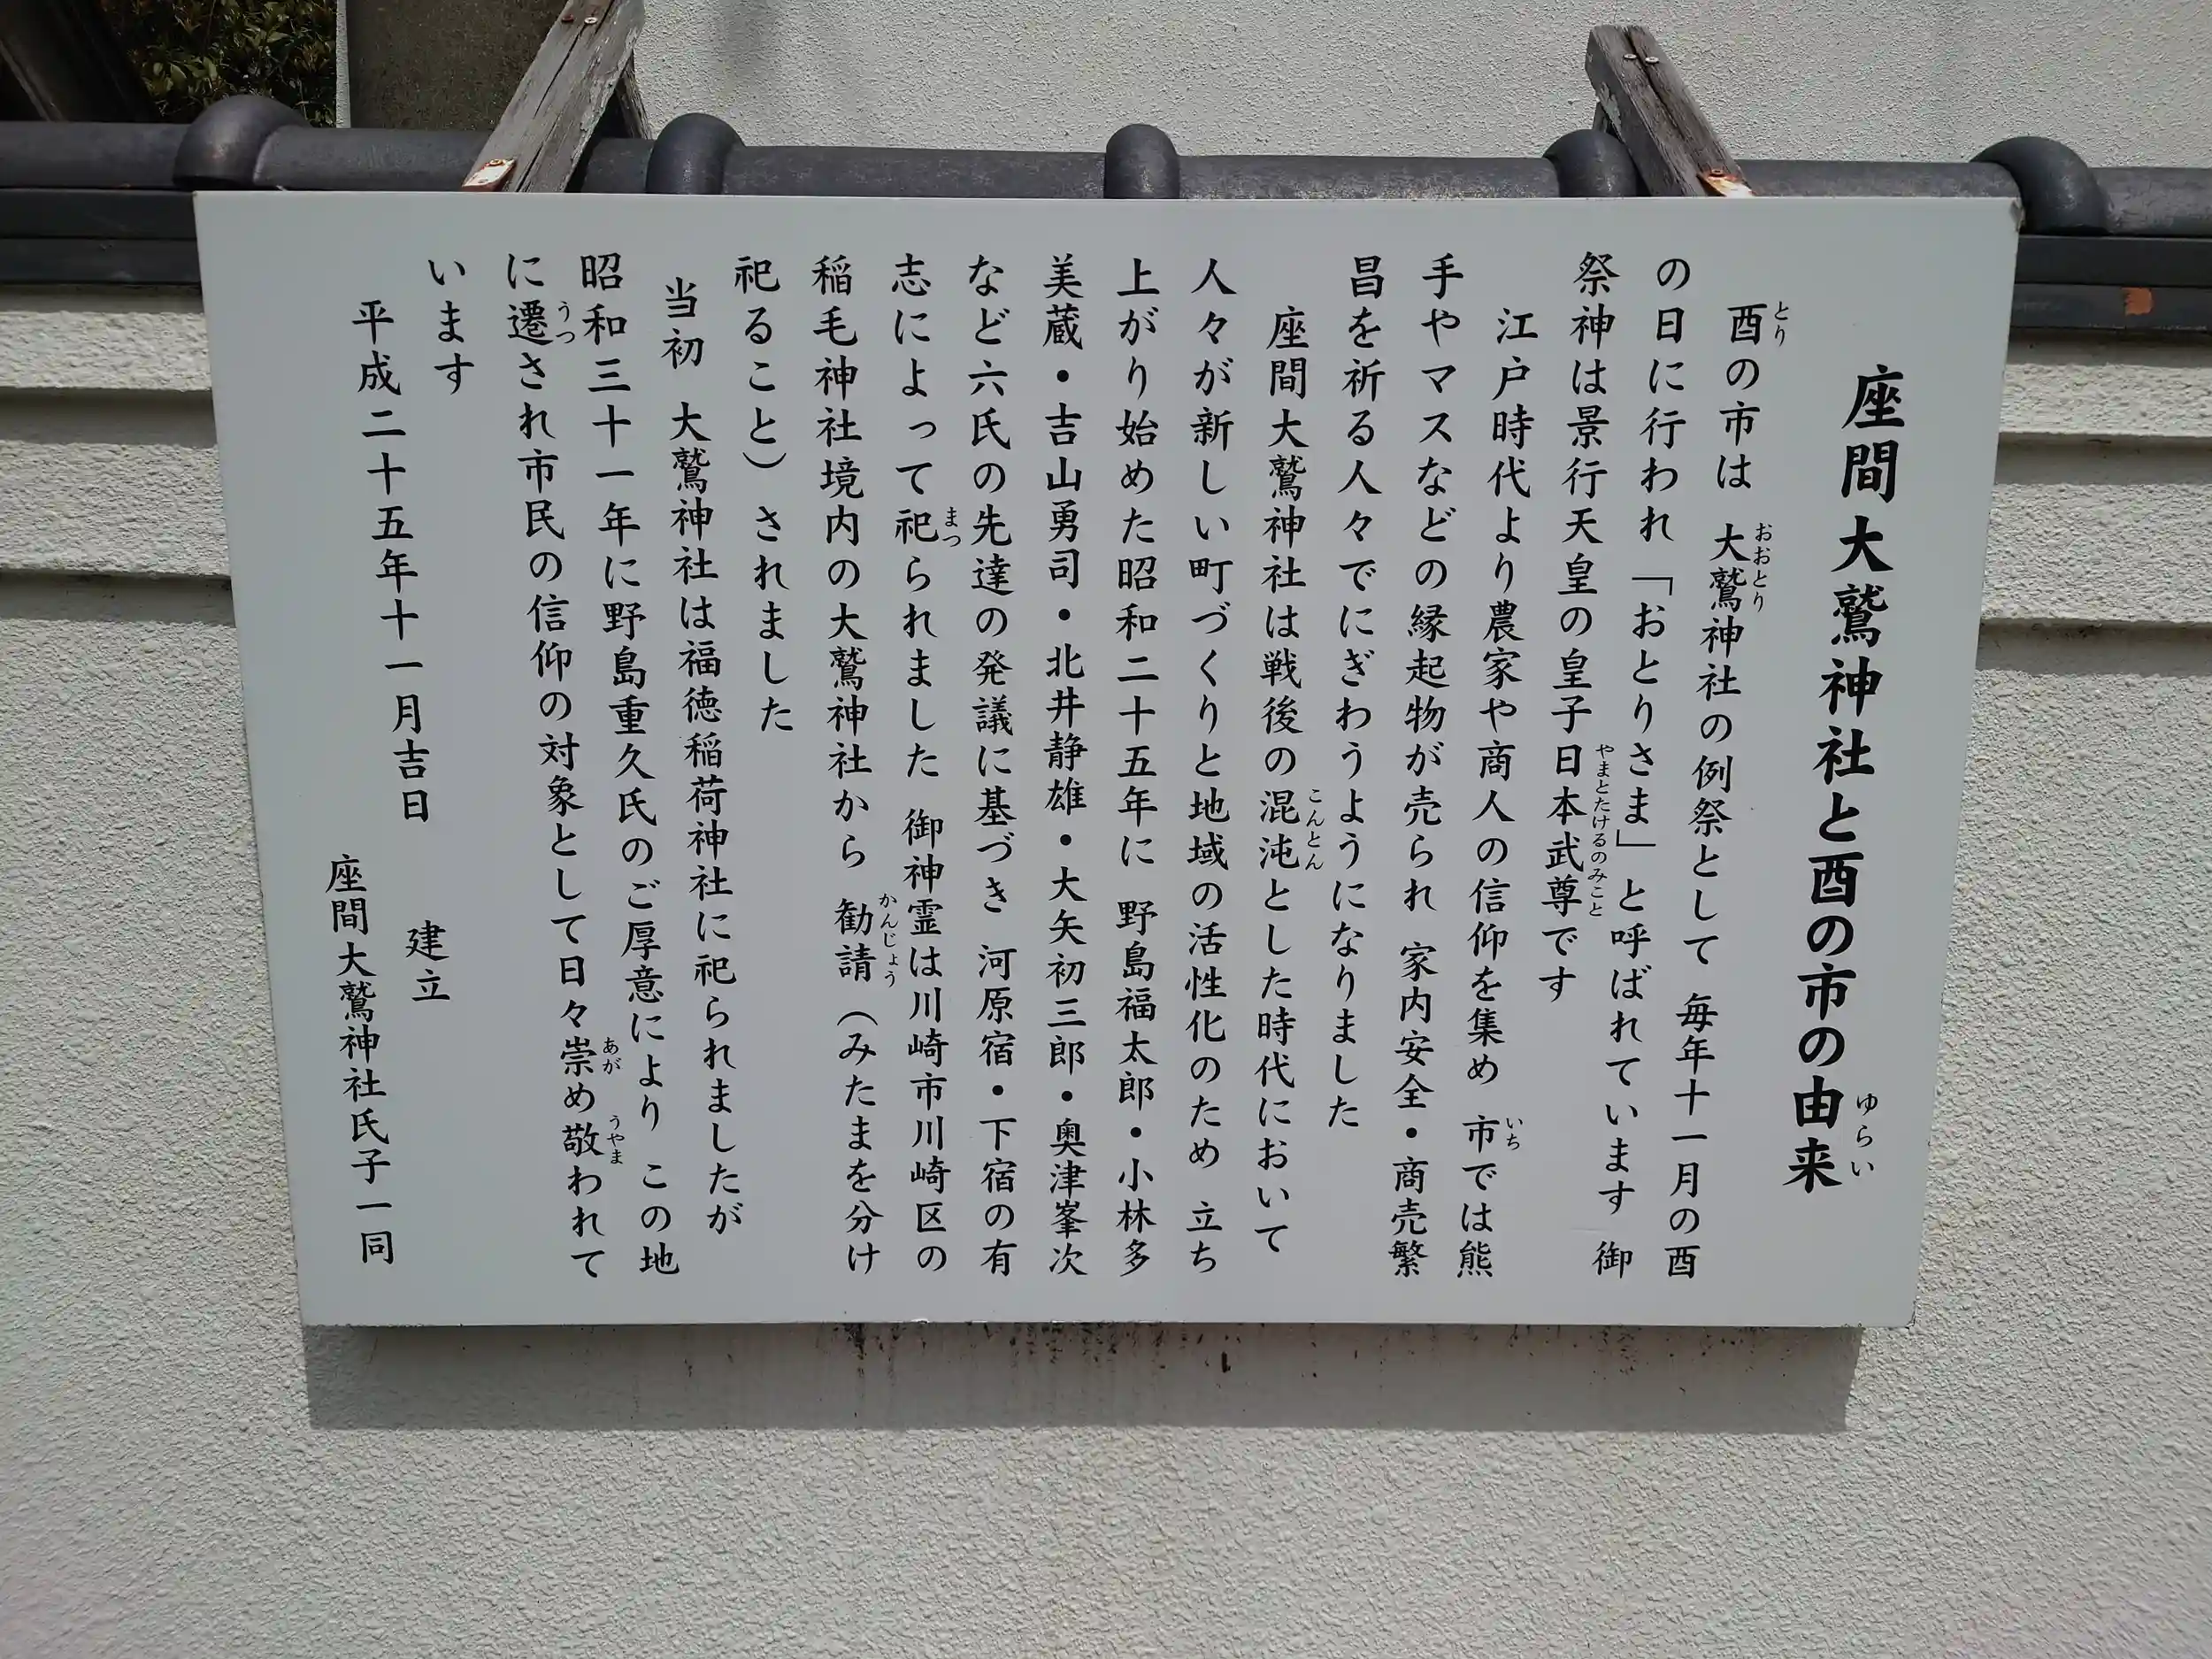 座間大鷲神社と酉の市の由来
ゆらい
酉の市は 大鷲神社の例祭として 毎年十一月の酉
とり おおとり
の日に行われ「おとりさま」と呼ばれています 御
祭神は景行天皇の皇子日本武尊です
やまとたけるのみこと
江戸時代より農家や商人の信仰を集め 市では熊
いち
手やマスなどの縁起物が売られ 家内安全・商売繁
昌を祈る人々でにぎわうようになりました
座間大鷲神社は戦後の混沌とした時代において
こんとん
人々が新しい町づくりと地域の活性化のため 立ち
上がり始めた昭和二十五年に 野島福太郎・小林多
美蔵・吉山勇司・北井静雄・大矢初三郎・奥津峯次
など六氏の先達の発議に基づき 河原宿・下宿の有
志によって祀られました 御神霊は川崎市川崎区の
まつ
稲毛神社境内の大鷲神社から 勧請(みたまを分け
かんじょう
祀ること)されました
当初 大鷲神社は福徳稲荷神社に祀られましたが
昭和三十一年に野島重久氏のご厚意により この地
に遷され市民の信仰の対象として日々崇め敬われて
うつ あが うやま
います
建立
平成二十五年十一月吉日
座間大鷲神社氏子一同